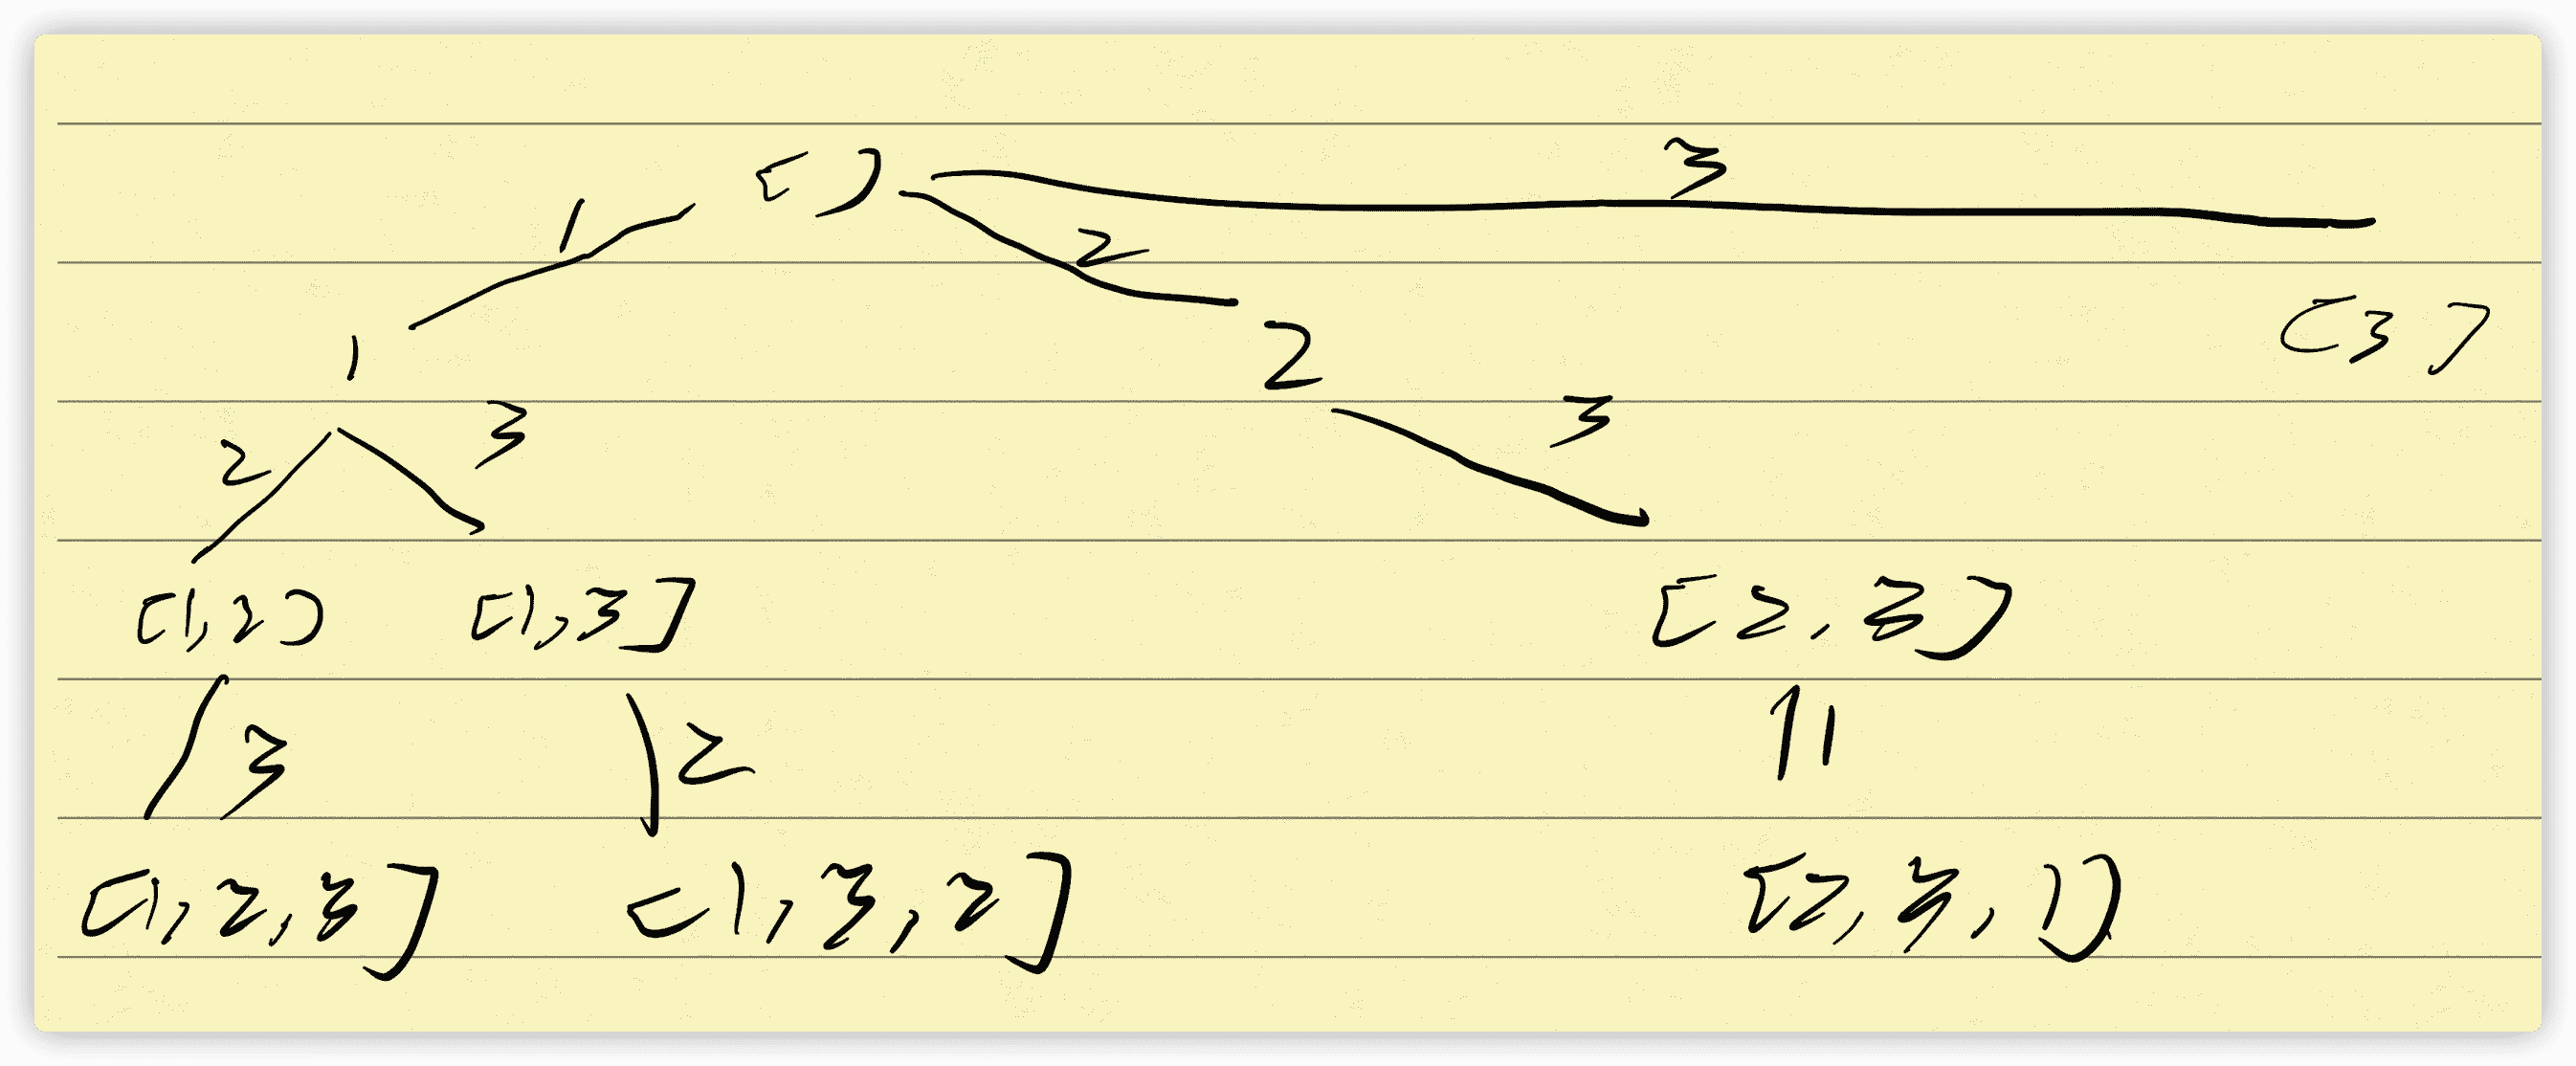 [ ]
3
1
2
1
2
[3]
2
3
3
[1,2] [1,3] [2,3]
3 2 1
[1,2,3] [1,3,2] [2,3,1]